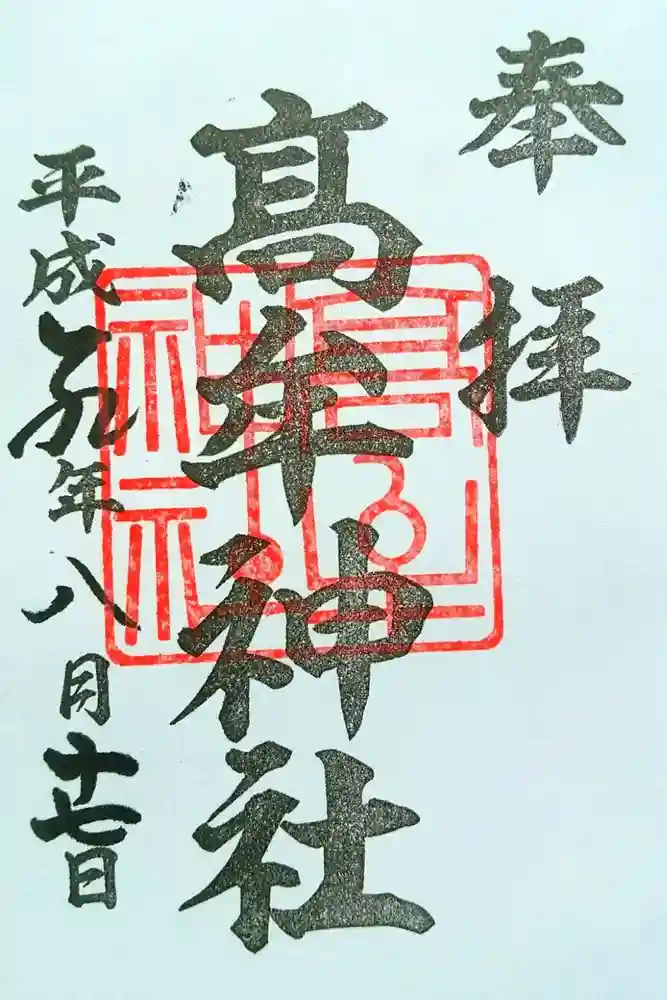 奉拝
髙牟神社
高牟
神社
平成年八月十七日